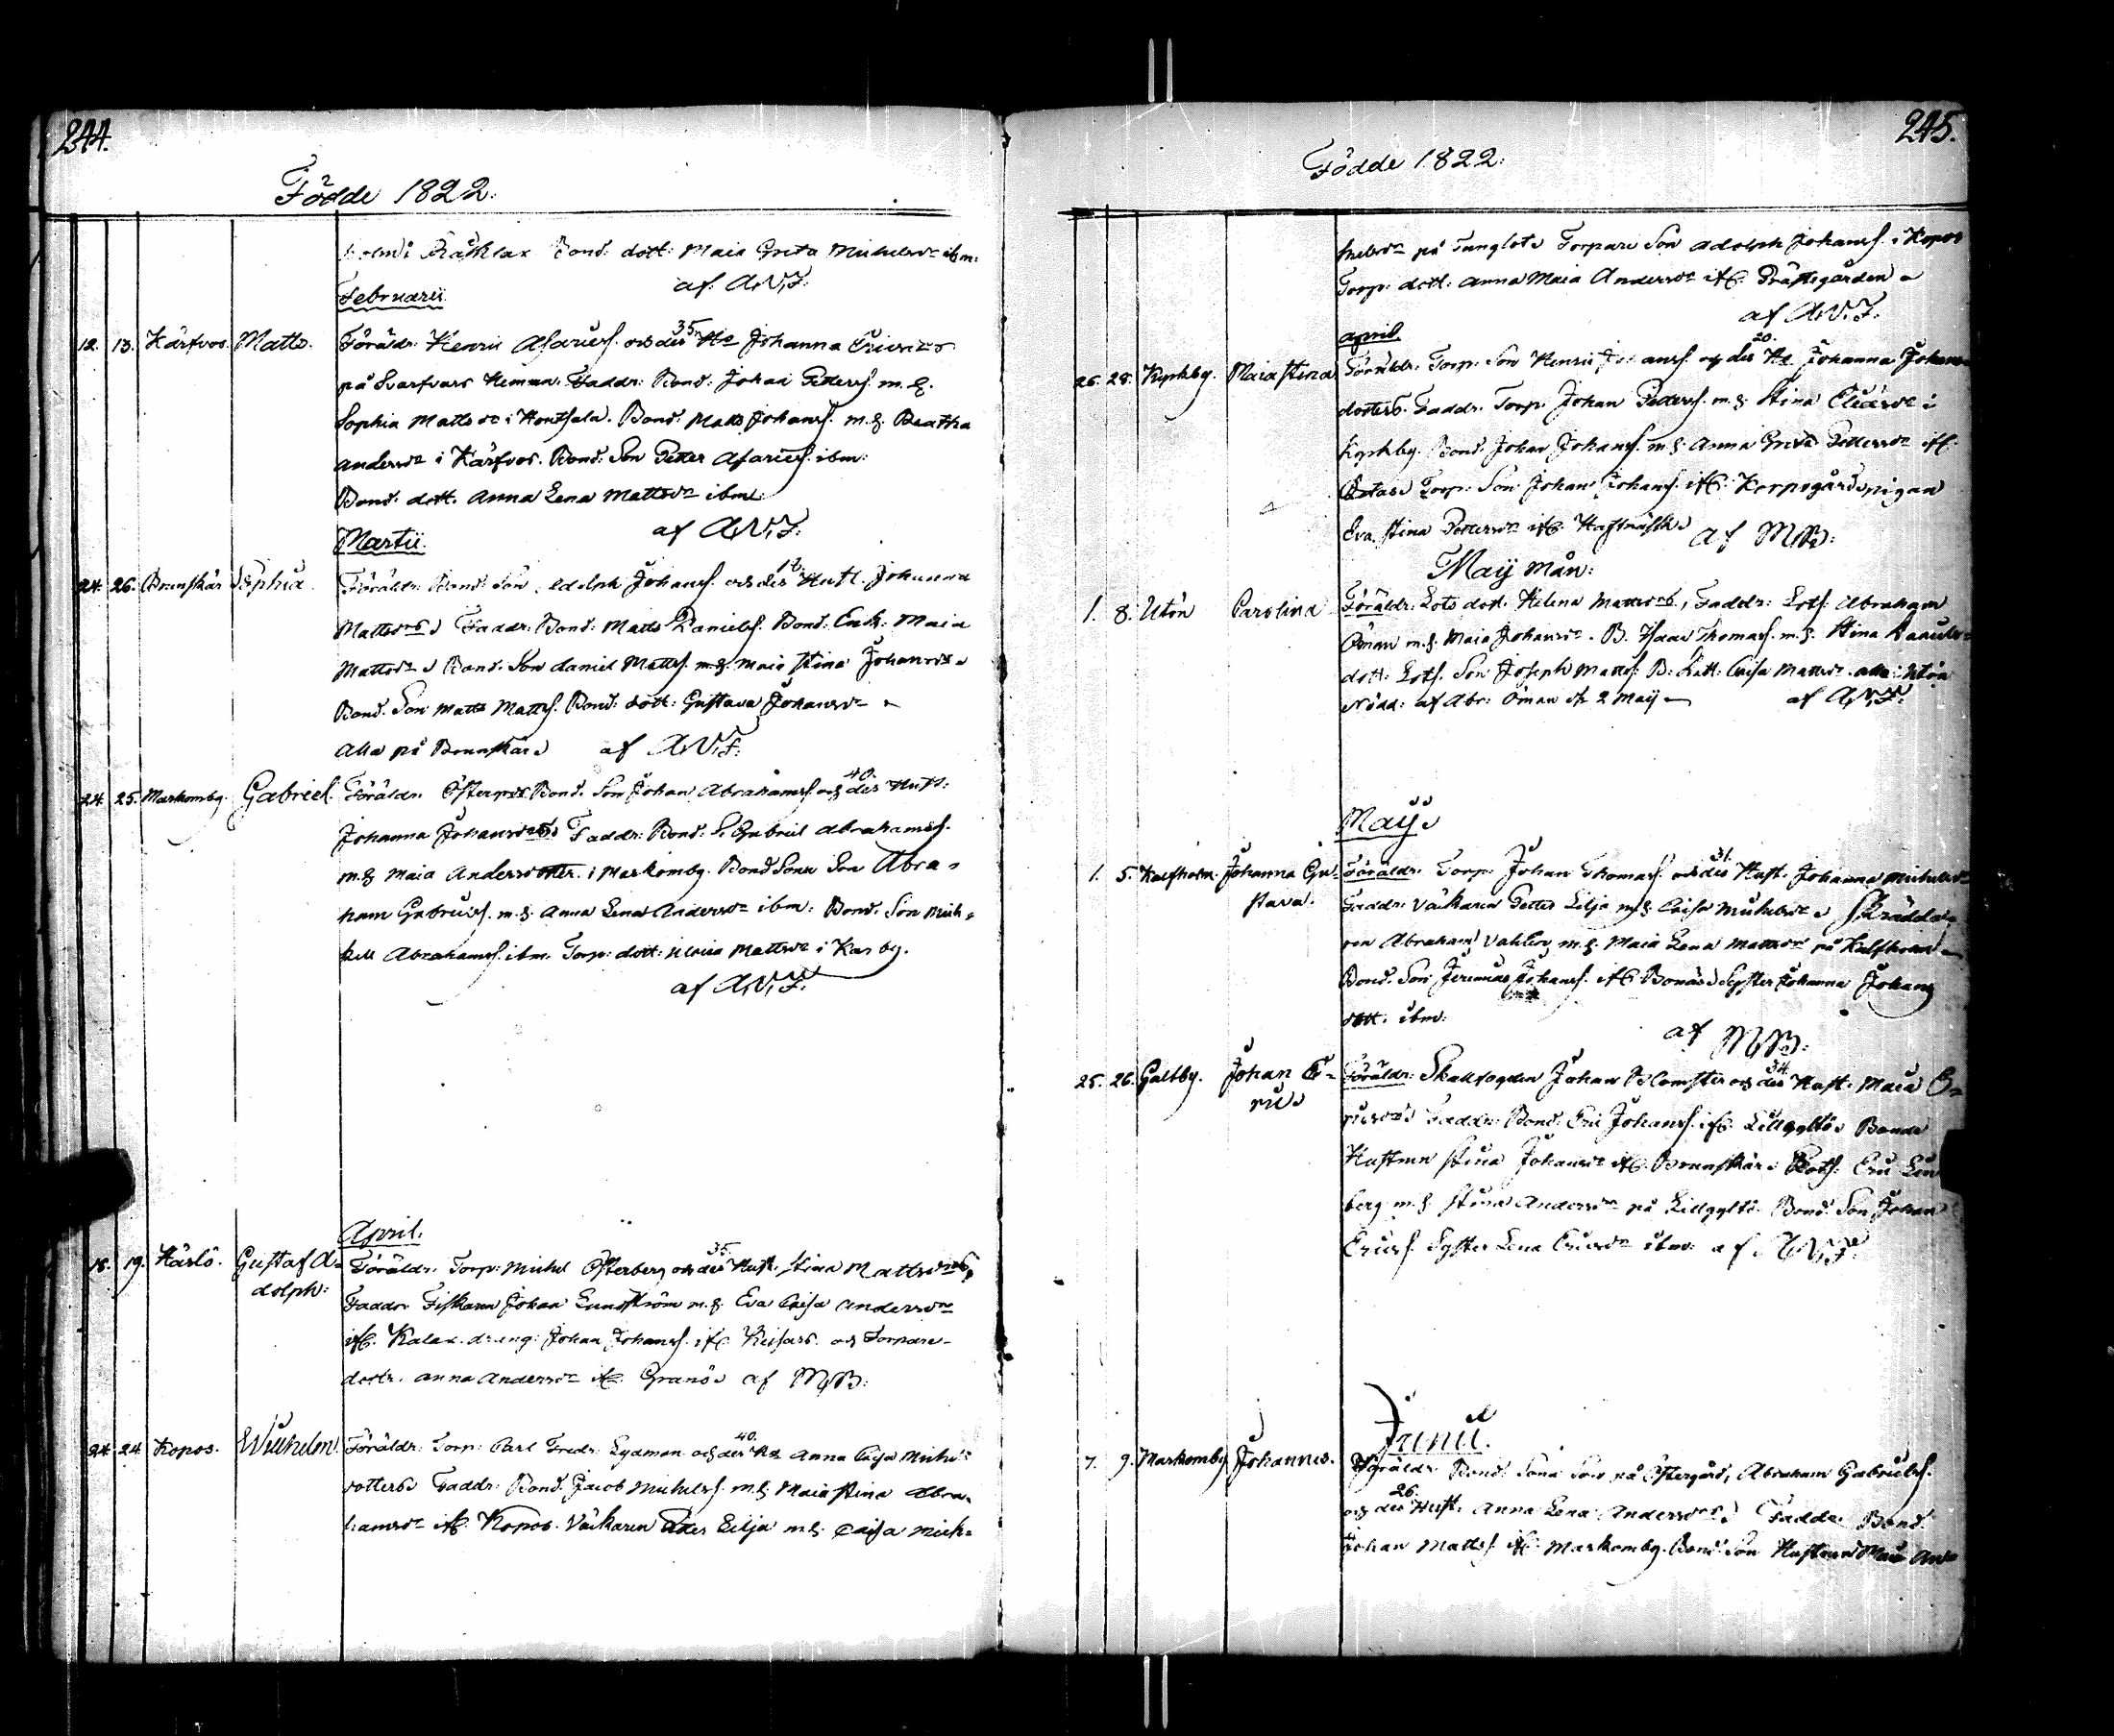 244.
Födde 1822.
Bond. dott: Maia Greta Michelsdr ibm:
af A.N.F.
Februarii
12. 13. Kärfvos. Matts. Föräldr. Henric Asariess. och des 35 Ha Johanna Ericsdrs
på Svarfvars Hemman. Faddr: Bond: Johan Petterss. m. h.
Sophia Mattsdr i Hontsala. Bond. Matts Johanss. m.h. Beatha
Andersdr i Kärfvos. Bond: Son Petter Asariess. ibm:
Bond. dott. Anna Lena Mattsdr ibm:
af A.N.F.
Martii.
24. 26. Brunskär Sophia. Föräldr. Bond: Son Adolph Johanss. och des Hust. Johanna
Mattsdrs Faddr: Bond: Matts Daniels. Bond. Enk: Maia
Mattsdr Bond. Son Daniel Mattss. m.h. Maia Stina Johansdr
Bond. Son Matts Mattss. Bond: dott: Gustava Johansdr
Alla på Brunskär af A.N.F.
24. 25. Markomby. Gabriel. Föräldr. Östergårds Bond. Son Johan Abrahamss och des 40. Hust:
Johanna Johansdrs Faddr: Bond: S. Gabriel Abrahamss.
m.h Maia Andersdotter. i Markomby. Bond Sons Son Abra=
ham Gabrielss. m.h. Anna Lena Andersdr ibm: Bond. Son Mich=
kell Abrahamss. ibm. Torp: dott: Ulrica Mattsdr i Karby.
af A.N.F.
April.
18. 19. Härlö. Gustaf A= Föräldr. Torp: Michel Österberg och des 35 Hust. Stina Mattsdrs,
dolph: Faddr Fiskaren Johan Lundström m.h. Eva Caisa Andersdr
ifr. Kalax. dreng: Johan Johanss. ifr. Keisars. och Torpare-
dottr. Anna Andersdr ifr. Granö af MB:
24. 24 Kopos. Wilhelm. Föräldr: Torp: Carl Fredr: Lydman och des 40. Ha Anna Caisa Michels
dotters Faddr: Bond. Jacob Michelss. m.h Maia Stina Abra=
hamsdr ifr. Kopos. Väckaren Petter Lilja m.h. Caisa Mich=
245.
Födde 1822:
helsdr på Tunglots Torpare Son Adolph Johanss. i Kopos
Torp: dott: Anna Maia Andersdr ifr. Prästgården
af A.N.F.
april.
26. 28. Kyrkby. Maia Stina Föräldr: Torp: Son Henric Johanss. och des 20. Ha Johanna Johans
dotters. Faddr. Torp. Johan Petterss. m.h. Stina Eliasdr i
Kyrkby. Bond. Johan Johanss. m.h. Anna Greta Pettersdr ifr.
Torp: Son Johan Johanss. ifr: Korpogårds pigan
Eva Stina Pettersdr ifr. af MB:
Maij mån:
1. 8. Utön Carolina Föräldr: Lots dott. Helena Mattsdrs, Faddr: Lots: Abraham
Öman m.h. Maia Johansdr. B. Isaac Thomass. m.h. Stina
dott: Lots. Son Joseph Mattss. B: dott: Caisa Mattsdr. alla i Utön
Nödd: af Abr: Öman d. 2 Maij af A.N.F.
Maij
1. 5. Kalfholm. Johanna Gu= Föräldr. Torp. Johan Thomass. och des 31. Hust. Johanna Michelsdr
stava. Faddr. Väckaren Petter Lilja m.h Caisa Michelsdr Skrädda=
ren Abraham Vahlberg m.h. Maia Lena Mattsdr på Kalfholm
Bond. Son Jeremias Johanss. ifr. Bonäs Syster Johanna Johans
dott. ibm:
af MB:
25. 26. Galtby. Johan E= Föräldr: Skallfogden Johan Blomster och des 34. Hust. Maia E=
ric ricsdrs Faddr: Bond: Eric Johanss. ifr. Lillgyltö Bonde
Hustrun Stina Johansdr ifr. Brunskär Lots. Eric Lin
berg m.h. Stina Andersdr på Lillgyltö. Bond. Son Johan
Ericss. Syster Lena Ericsdr ibm: af A.N.F.
Junii.
7. 9. Markomby Johannes. Föräldr. Bond: Sons Son på Östergård, Abraham Gabrielss.
och des 26. Hust. Anna Lena Andersdrs Faddr. Bond.
Johan Mattss. ifr: Markomby. Bond: Son Hustrun Maia An=